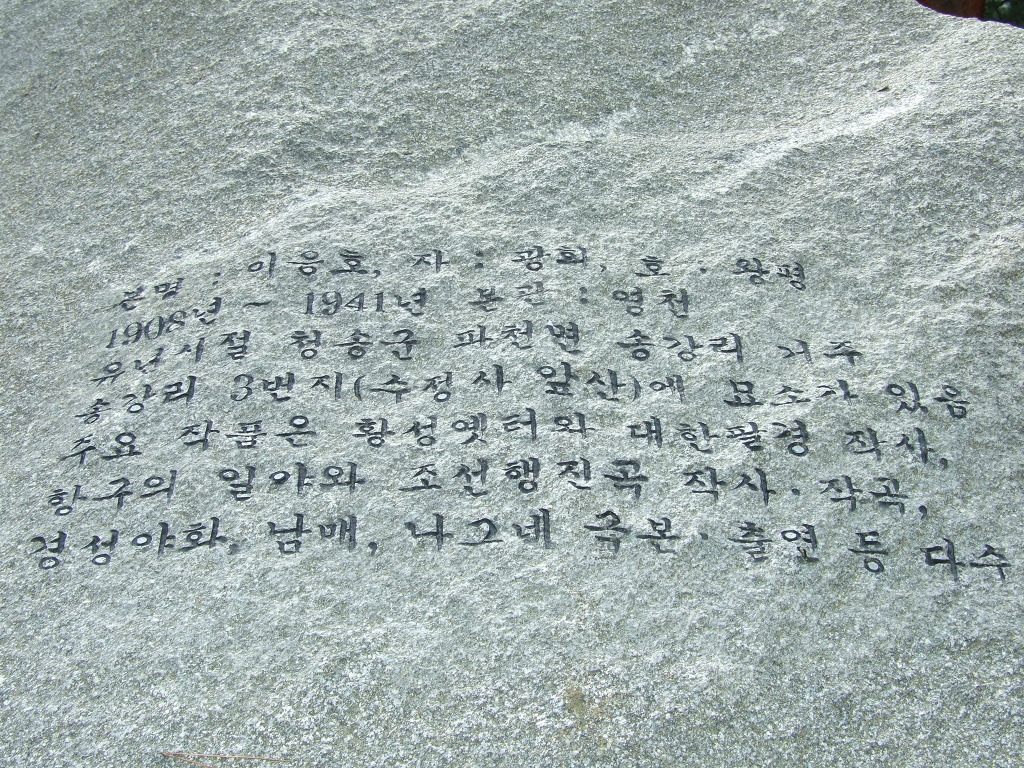 본명 : 이응호, 자 : 광희, 호 · 왕평
1908년 ~ 1941년 본관 : 영천
유년시절 청송군 파천면 송강리 거주
송강리 3번지(수정사 앞산)에 묘소가 있음
주요 작품은 황성옛터와 대한팔경 작사,
항구의 일야와 조선행진곡 작사·작곡,
경성야화, 남매, 나그네 극본·출연 등 다수